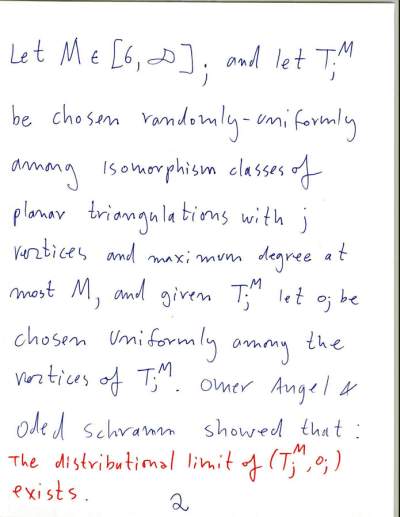 Let M ∈ [6, ∞], and let T_j^M
be chosen randomly-uniformly
among isomorphism classes of
planar triangulations with j
vertices and maximum degree at
most M, and given T_j^M let o_j be
chosen uniformly among the
vertices of T_j^M. Omer Angel &
Oded Schramm showed that:
The distributional limit of (T_j^M, o_j)
exists.
2